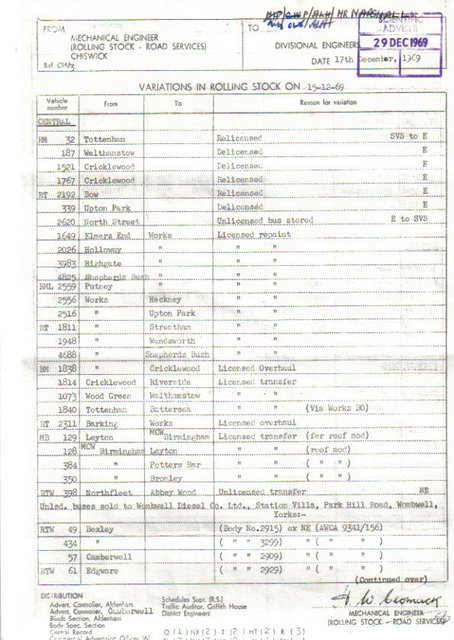 FROM
MECHANICAL ENGINEER
(ROLLING STOCK - ROAD SERVICES)
CHISWICK
TO
DIVISIONAL ENGINEERS
DATE 17th December, 1969
SCIENTIFIC
ADVISER
29 DEC 1969
VARIATIONS IN ROLLING STOCK ON 15-12-69
Vehicle number From To Reason for variation
CENTRAL
RM 32 Tottenham Relicensed SVS to E
187 Walthamstow Delicensed E
1521 Cricklewood Delicensed E
1767 Cricklewood Relicensed E
RT 2192 Bow Relicensed E
339 Upton Park Delicensed E
2620 North Street Unlicensed bus stored E to SVS
1649 Elmers End Works Licensed repaint
2026 Holloway " " "
3983 Highgate " " "
4825 Shepherds Bush " " "
RML 2559 Putney " " "
2556 Works Hackney " "
2516 " Upton Park " "
RT 1811 " Streatham " "
1948 " Wandsworth " "
4688 " Shepherds Bush " "
RM 1838 " Cricklewood Licensed Overhaul
1814 Cricklewood Riverside Licensed transfer
1073 Wood Green Walthamstow " "
1840 Tottenham Battersea " " (Via Works DO)
RT 2311 Barking Works Licensed overhaul
MB 129 Leyton MCW Birmingham Licensed transfer (for roof mod)
128 MCW Birmingham Leyton " " (roof mod)
384 " Potters Bar " " ( " " )
350 " Bromley " " ( " " )
RTW 398 Northfleet Abbey Wood Unlicensed transfer NE
Unlsd. buses sold to Wombwell Diesel Co. Ltd., Station Villa, Park Hill Road, Wombwell,
Yorks:-
RTW 49 Bexley (Body No.2915) ex NE (AWCA 9341/156)
434 " ( " " 3299) " ( " " )
57 Camberwell ( " " 2909) " ( " " )
RTW 61 Edgware ( " " 2929) " ( " " )
(Continued over)
DISTRIBUTION
Advert. Controller, Aldenham
Advert. Controller, Camberwell
Blinds Section, Aldenham
Body Spec. Section
Central Record
Schedules Supt (R.S.)
Traffic Auditor, Griffith House
District Engineers
MECHANICAL ENGINEER
(ROLLING STOCK - ROAD SERVICES)